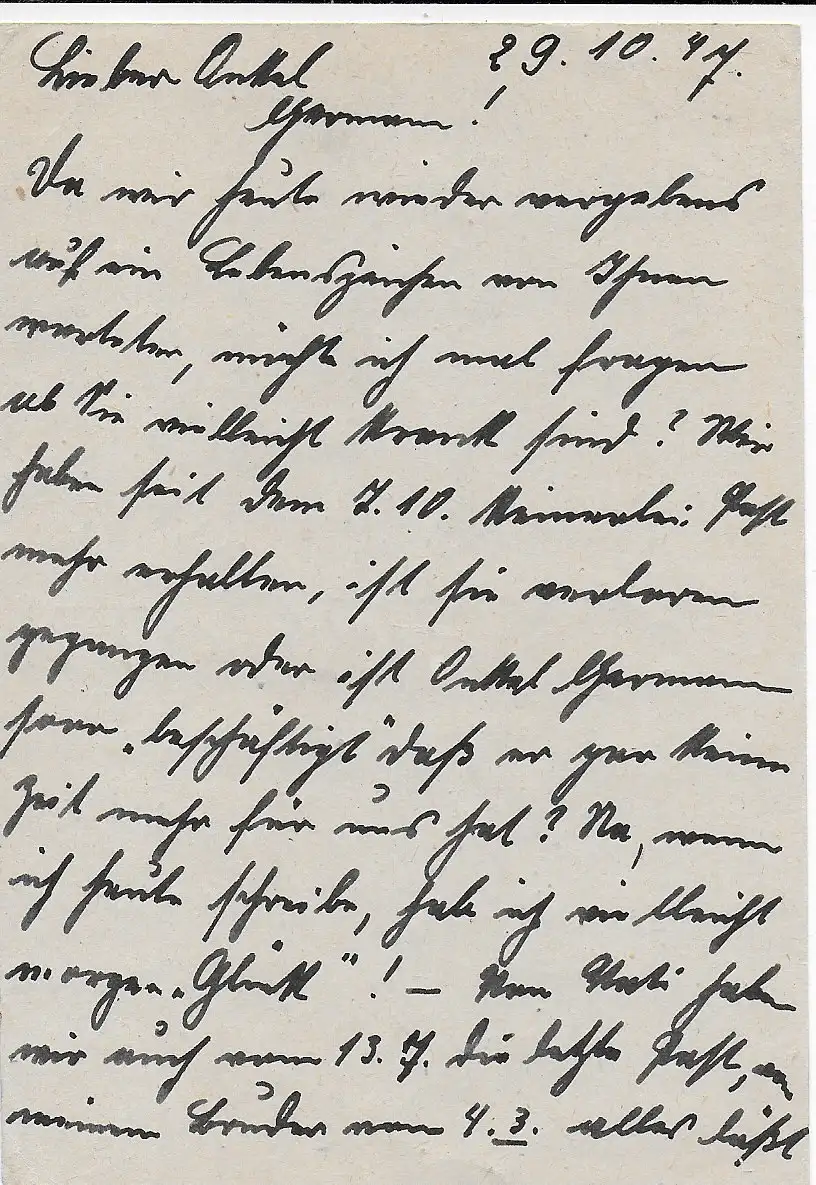 Lieber Onkel 29.10.47.
Germann!
Da wir heute wieder vergebens
auf ein Lebenszeichen von Ihnen
warteten, möchte ich mal fragen
ob Sie vielleicht krank sind? Wir
haben seit dem 7.10. keinerlei Post
mehr erhalten, ist sie verloren
gegangen oder ist Onkel Germann
so „beschäftigt" daß er gar keine
Zeit mehr für uns hat? Na, wenn
ich heute schreibe, hab ich vielleicht
morgen „Glück"! – Von Vati haben
wir auch vom 13.7. die letzte Post, von
meinem Bruder vom 4.3. alles läßt